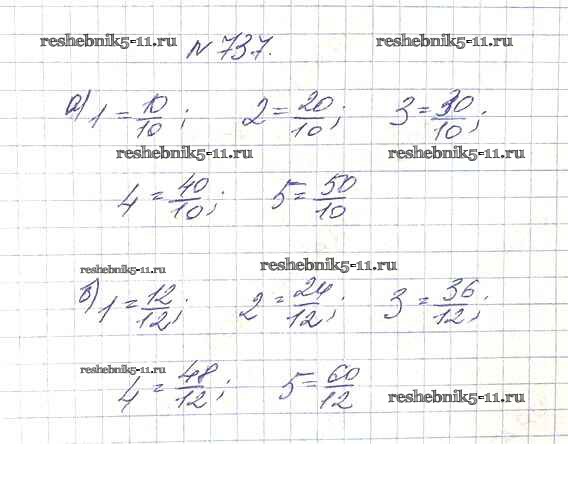 reshebnik5-11.ru № 737. reshebnik5-11.ru
а) 1 = 10/10; 2 = 20/10; 3 = 30/10;
reshebnik5-11.ru reshebnik5-11.ru
4 = 40/10; 5 = 50/10
reshebnik5-11.ru reshebnik5-11.ru
б) 1 = 12/12; 2 = 24/12; 3 = 36/12;
reshebnik5-11.ru
4 = 48/12; 5 = 60/12
reshebnik5-11.ru